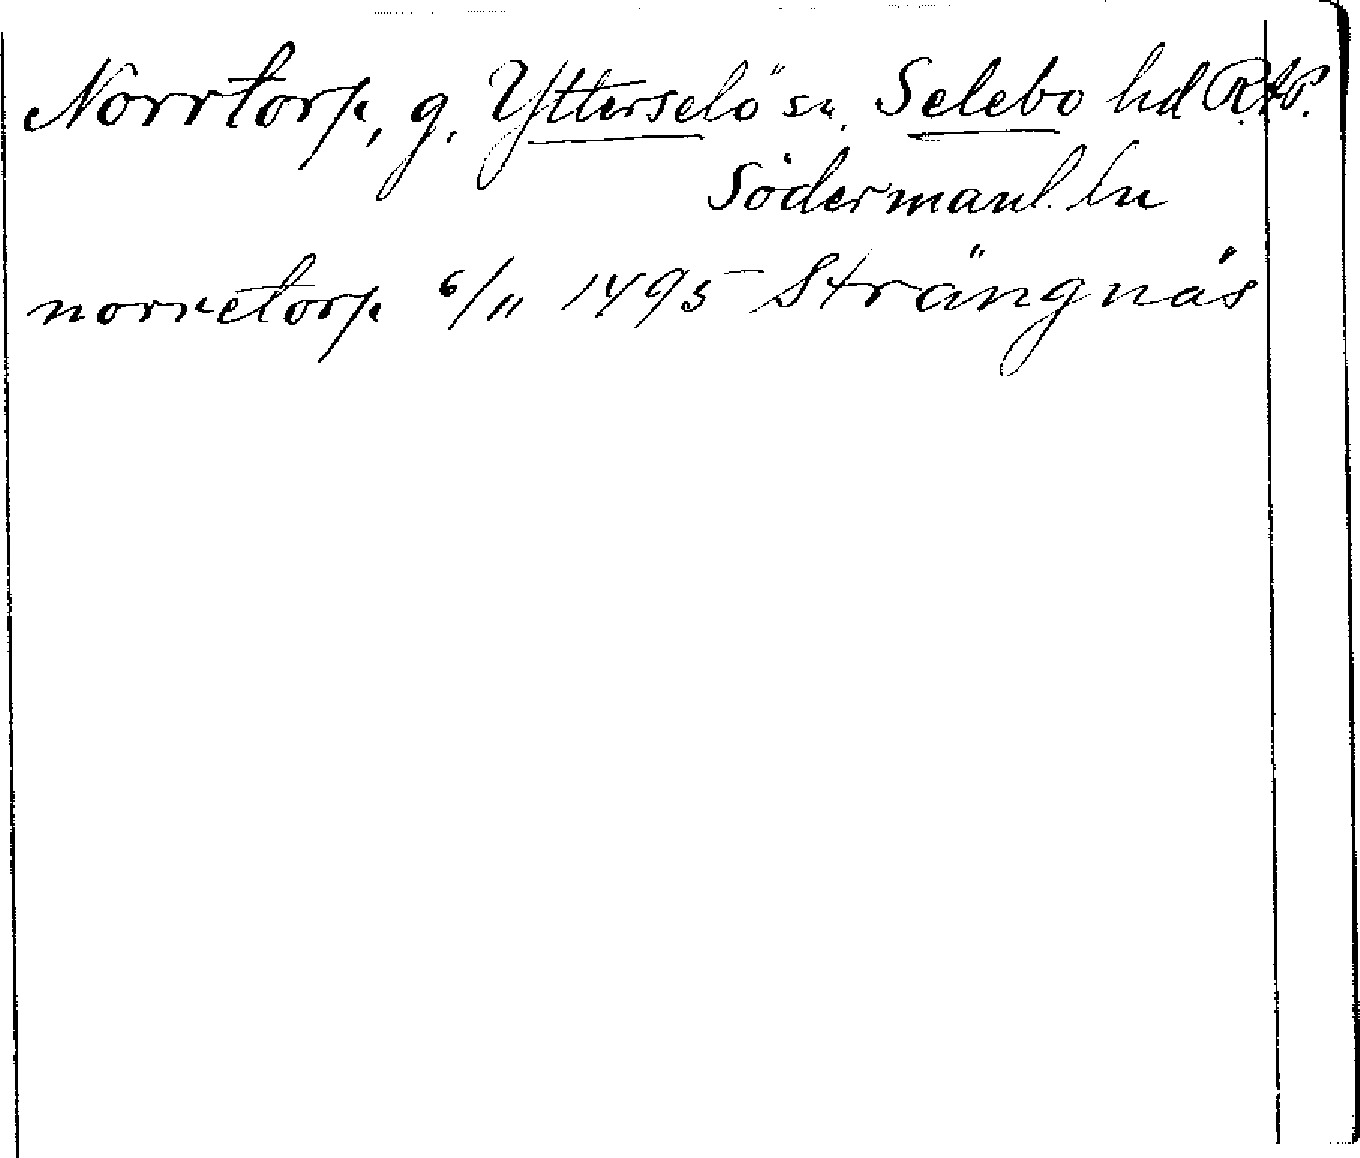 Norrtorp, g. Ytterselö sn. Selebo hd RAP.
Södermanl. ln
norretorp 6/11 1495 Strängnäs